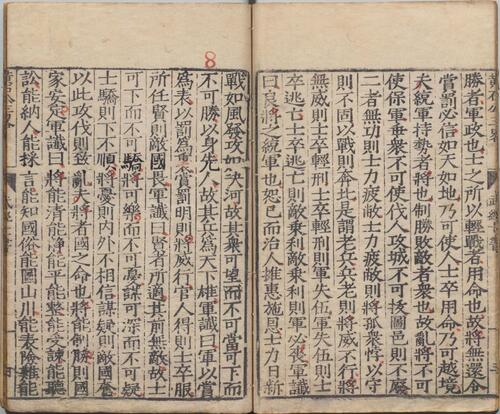 勝者軍政也士之所以輕戰者用命也故將無還令
賞罰必信如天如地乃可使人士卒用命乃可越境
夫統軍持勢者將也制勝敗敵者衆也故亂將不可
使保軍乖衆不可使伐人攻城不可拔圖邑則不廢
二者無功則士力疲敵士力疲敵則將孤衆悖以守
則不固以戰則奔北是謂老兵兵老則將威不行將
無威則士卒輕刑士卒輕刑則軍失伍軍失伍則士
卒逃亡士卒逃亡則敵乘利敵乘利則軍必喪軍讖
曰良將之統軍也恕己而治人推惠施恩士力日新
8
戰如風發攻如決河故其衆可望而不可當可下而
不可勝以身先人故其兵爲天下雄軍讖曰軍以賞
爲表以罰爲裏賞罰明則將威行官人得則士卒服
所任賢則敵國畏軍讖曰賢者所適其前無敵故士
可下而不可驕將可樂而不可憂謀可深而不可疑
士驕則下不順將憂則內外不相信謀疑則敵國奮
以此攻伐則致亂夫將者國之命也將能制勝則國
家安定軍讖曰將能清能淨能平能整能受諫能聽
訟能納人能採言能知國俗能圖山川能表險難能